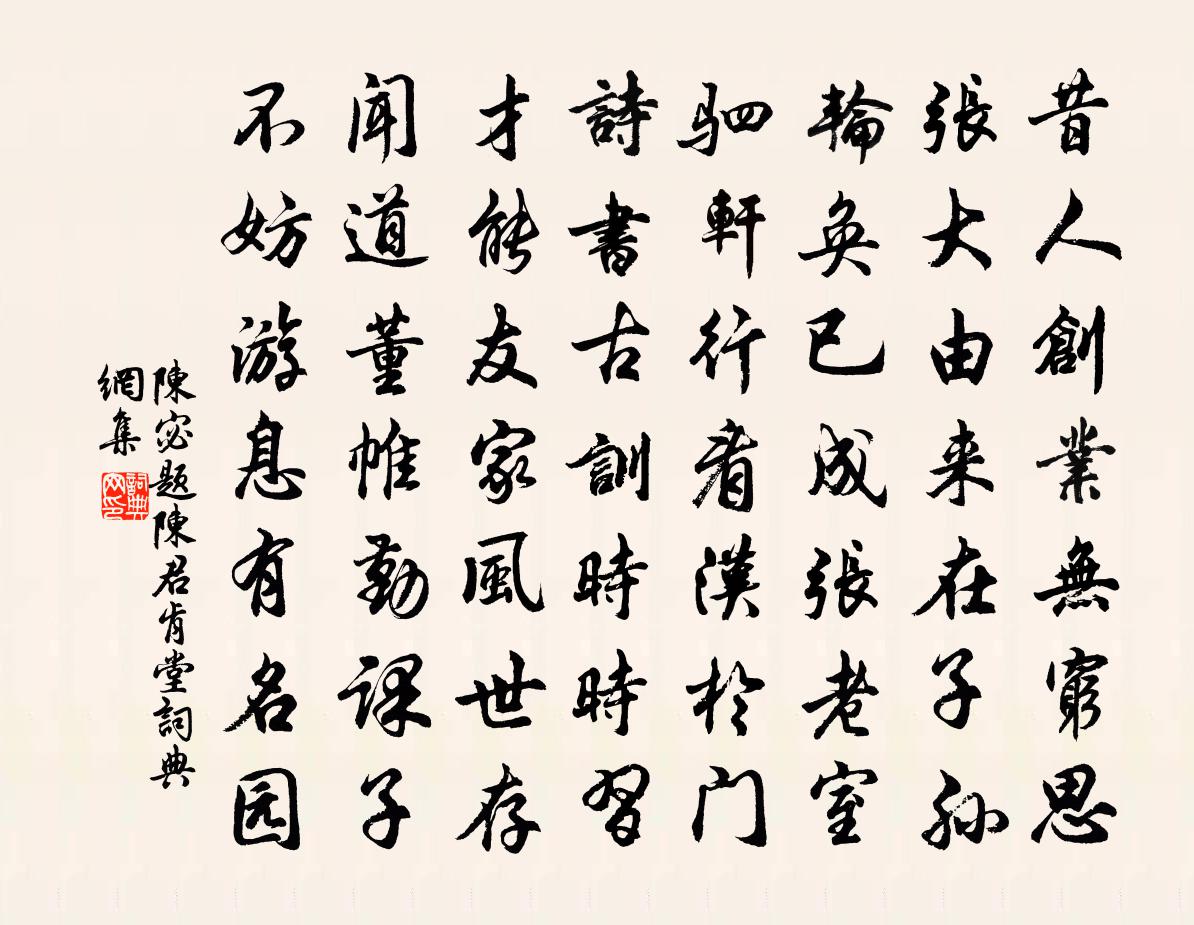 昔人創業無窮思
張大由来在子孫
輪奐已成張老室
駟軒行看漢於门
詩書古訓時時習
才能友家風世存
闻道董帷勤課子
不妨游息有名园
陳宓題陳君肯堂詞典
網集
詞典
网印